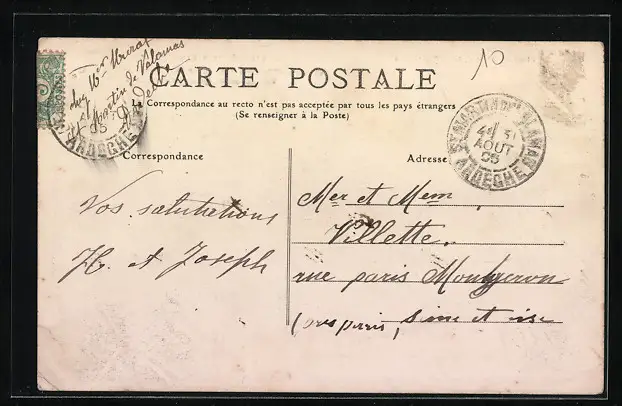 chez Mr Meraz
St Martin de Valamas
Ardèche
10
CARTE POSTALE
La Correspondance au recto n'est pas acceptée par tous les pays étrangers
(Se renseigner à la Poste)
05
ARDÈCHE
ST MARTIN DE VALAMAS
31
AOUT
05
ARDÈCHE
Correspondance
Adresse
Vos salutations
H. et Joseph
Mer et Mem
Villette.
rue paris Montgeron
paris, sine et ise